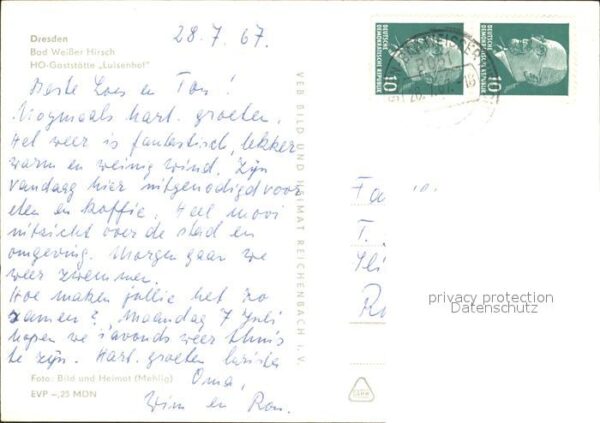 Dresden
Bad Weißer Hirsch
HO-Gaststätte „Luisenhof"
28.7.67.
Beste Loes en Ton!
Nogmaals hart. groeten.
Het weer is fantastisch, lekker
warm en weinig wind. Zijn
vandaag hier uitgenodigd voor
eten en koffie. Heel mooi
uitzicht over de stad en
omgeving. Morgen gaan we
weer zwemmen.
Hoe maken jullie het zo
samen? Maandag 7 Juli
hopen we s'avonds weer thuis
te zijn. Hart. groeten
Oma,
Wim en Ron.
Foto: Bild und Heimat (Mehlig)
EVP –,25 MDN
VEB BILD UND HEIMAT REICHENBACH i. V.
DEUTSCHE
DEMOKRATISCHE REPUBLIK
10
DEUTSCHE
DEMOKRATISCHE REPUBLIK
10
Fa
T.
R
privacy protection
Datenschutz